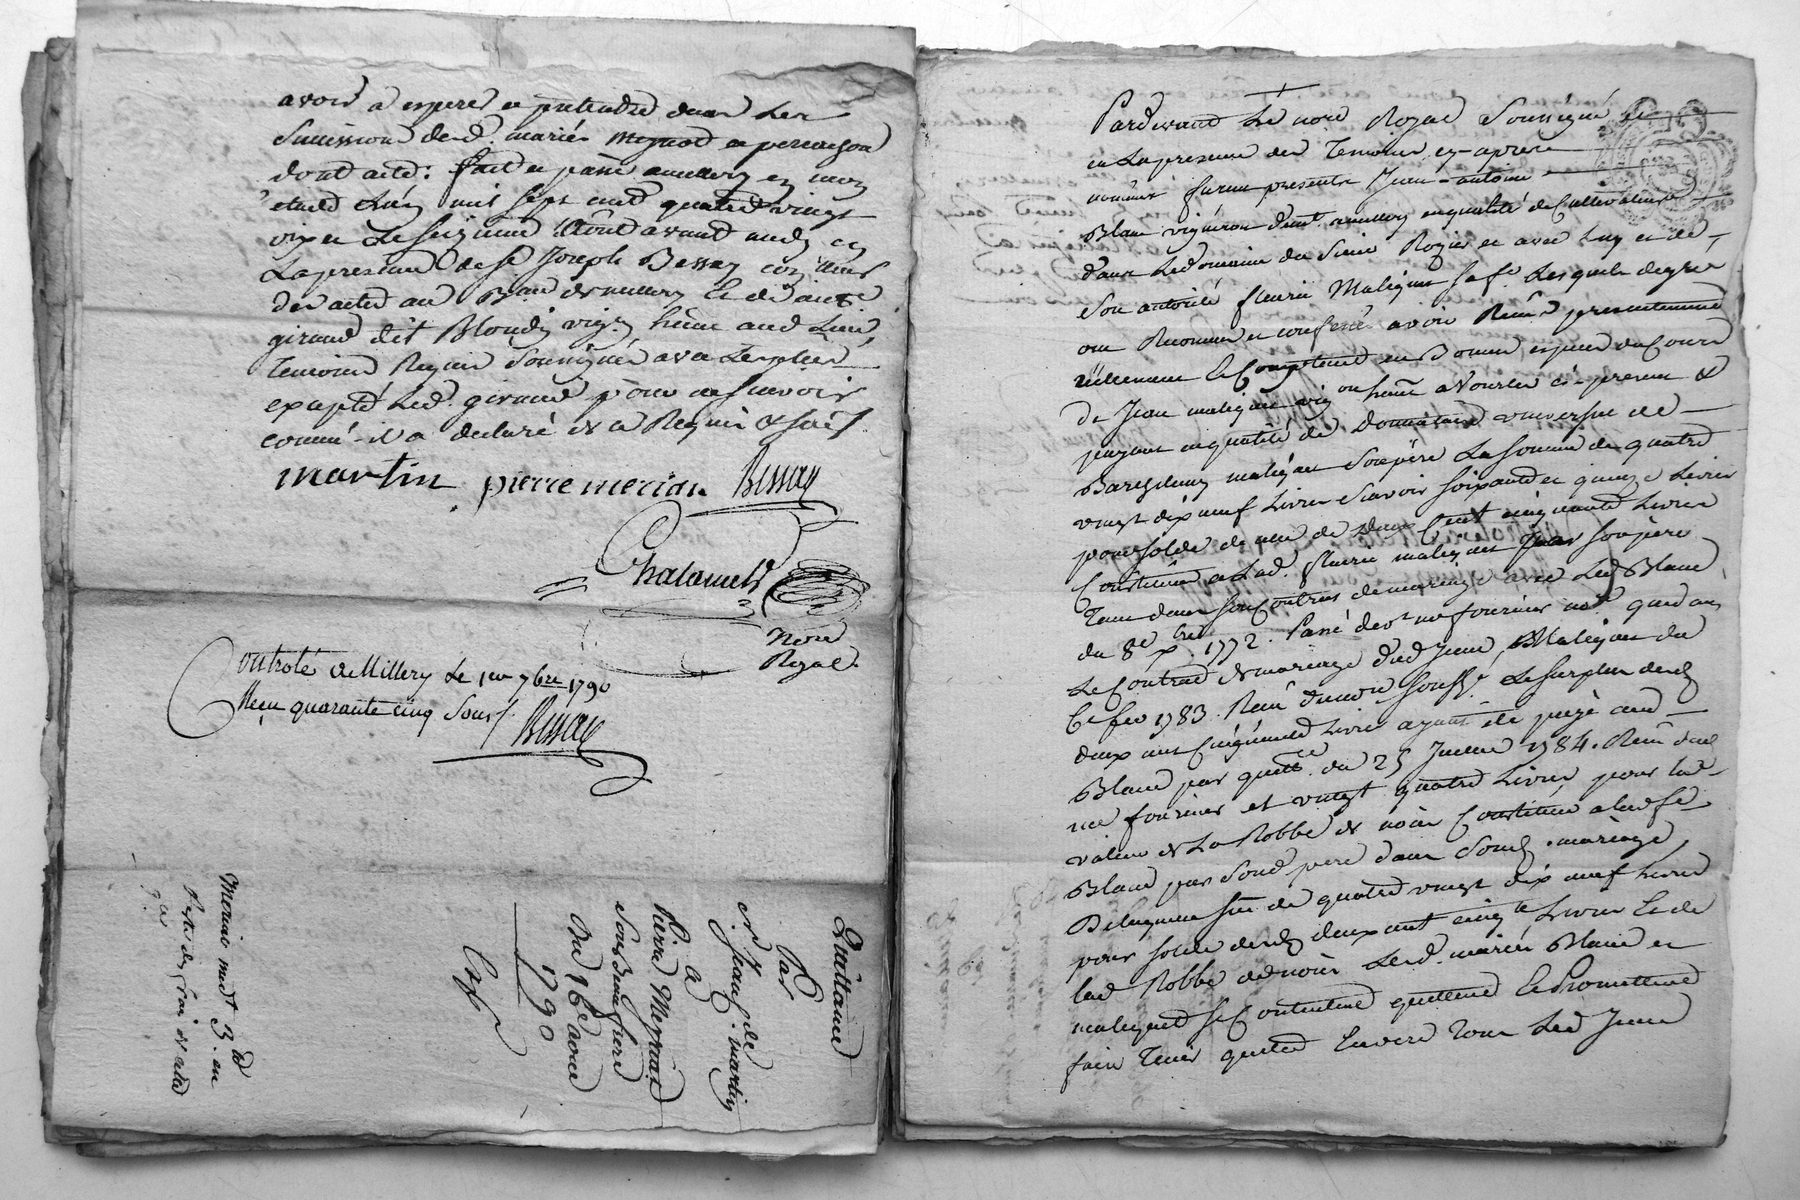 avoir a esperer et pretendre dans les
sucession desd. mariés et perrachon
dont acte: fait et passé a millery en mon
etude l'an mil sept cent quatre vingt
dix et le seizieme Aôut avant midy en
la presence de Sr Joseph Bessay
des actes au Bau de millery et de
giraud dit Blondy vig.
temoins Requis Soussignés avec les parties
excepté led. giraud pour ne sçavoir
comme il a declaré de ce Requis & fait
martin pierre merion Bessay
Chalamel
Nore
Royal.
Controlé a Millery le 1er 7bre 1790
Reçu quarante cinq sous Bessay
Quittance
Par
Sr Jean martin
a
Pierre
Son Beau frere
Du 16e aout
1790
Exp
Pardevant Le nore Royal Soussigné &
en la presence des temoins cy-aprés
nommés furent presents Jean-antoine
Blanc vigneron dem.t a millery en qualité de Cultivateur
dans le domaine du Sieur Rozier et avec luy et de
Son autorité fleurie Malignet sa fe. Lesquels de gré
ont Reconnu et confessé avoir Reçu presentement
réellement et Comptant en Bonnes especes du Cours
de Jean malignet vig. a Vourles ci-present &
payant en qualité de Donnataire universel de
Barthelemy malignet Son père La somme de quatre
vingt dix neuf Livres Sçavoir soixante et quinze Livres
pour solde de celle de Deux Cent cinquante Livres
Constituée a lad. fleurie malignet par son père
tant dans son Contrat de mariage avec led. Blanc
du 8e xbre 1772. Passé devt me fournier nore que dans
Le Contrat de mariage dud Jean Malignet du
6e fev 1783. Reçu du nore soussé. Le surplus desd.
deux cent cinquante Livres ayant été payé aud
Blanc par quittce. du 25 Juillet 1784. Reçu dud
me fournier et vingt quatre Livres pour la
valeur de La Robbe de noces Constituée a lad fe
Blanc par Sond pere dans Sond. mariage,
De laquelle sme de quatre vingt dix neuf Livres
pour solde desd. deux cent cinqte Livres et de
lad Robbe de noces Lesd. mariés Blanc et
malignet se Contentent quittent et Promettent
faire tenir quitte Envers tous Led Jean